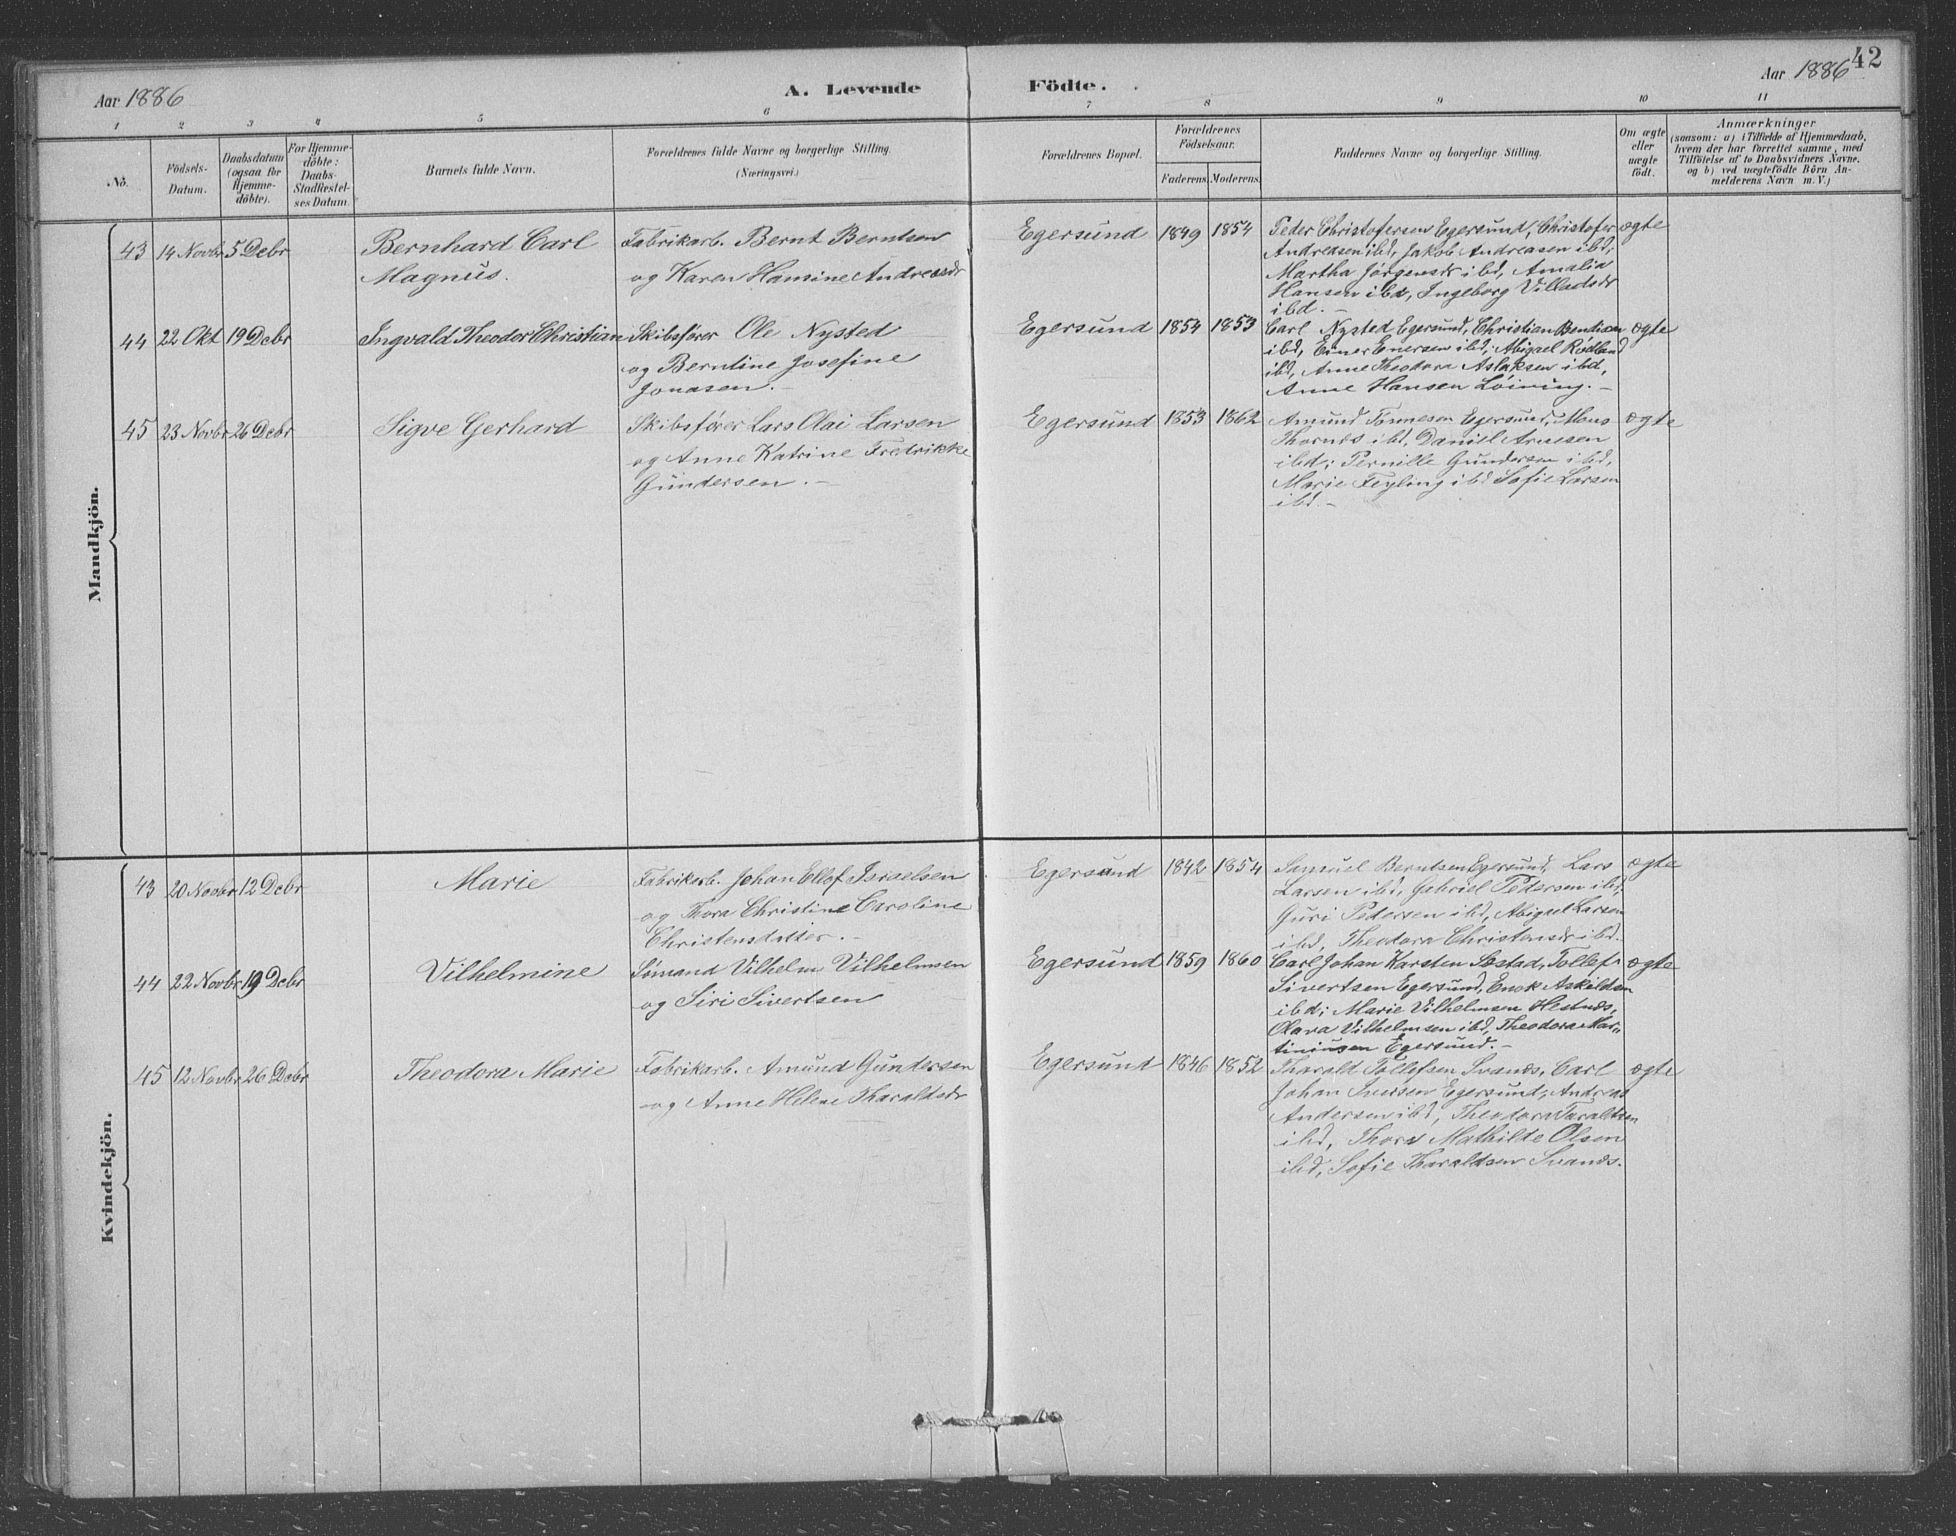 42
Aar 1886 A. Levende Födte. Aar 1886
1 2 3 4 5 6 7 8 9 10 11
No.
Födsels-
Datum.
Daabsdatum
(ogsaa for
Hjemme-
döbte).
For Hjemme-
döbte:
Daabs-
Stadfestel-
ses Datum.
Barnets fulde Navn.
Forældrenes fulde Navne og borgerlige Stilling.
(Næringsvei.)
Forældrenes Bopæl.
Forældrenes
Födselsaar.
Faderens. Moderens.
Faddernes Navne og borgerlige Stilling.
Om ægte
eller
uægte
födt.
Anmærkninger
(saasom: a) i Tilfælde af Hjemmedaab,
hvem der har forrettet samme, med
Tilföielse af to Daabsvidners Navne,
og b) ved uægtefödte Börn An-
melderens Navn m. V.)
Mandkjön.
43 14 Novbr 5 Debr
Bernhard Carl
Magnus.
Fabrikarb. Bernt Berntsen
og Karen Hamine Andreasdr
Egersund 1849 1854
Peder Christofersen Egersund, Christofer
Andreasen ibd, Jakob Andreasen ibd,
Martha Jørgensdr ibd, Amalia
Hansen ibd, Ingeborg Villadsdr
ibd. –
ægte
44 22 Okt 19 Debr
Ingvald Theodor Christian
Skibsfører Ole Nysted
og Berntine Josefine
Jonasen. –
Egersund 1854 1853
Carl Nysted Egersund, Christian Bentsen
ibd, Einer Enersen ibd, Abigael Rødland
ibd, Anne Theodora Aslaksen ibd,
Anne Hansen Løining. –
ægte
45 23 Novbr 26 Debr
Sigve Gerhard
Skibsfører Lars Olai Larsen
og Anne Katrine Fredrikke
Gundersen. –
Egersund 1853 1862
Amund Tonnesen Egersund, Mons
ibd, Daniel
ibd; Pernille Gundersen ibd,
Marie Feyling ibd Sofie Larsen
ibd. –
ægte
Kvindekjön.
43 20 Novbr 12 Debr
Marie
Fabrikarb. Johan Ellef Israelsen
og Thora Christine Caroline
Christensdatter. –
Egersund 1842 1854
Samuel Berntsen Egersund, Lars
Larsen ibd, Gabriel Pedersen ibd,
Guri Pedersen ibd, Abigael Larsen
ibd, Theodora Christensdr ibd.
ægte
44 22 Novbr 19 Debr
Vilhelmine
Sømand Vilhelm Vilhelmsen
og Siri Sivertsen
Egersund 1859 1860
Carl Johan Karsten Sæstad, Tollef
Sivertsen Egersund, Enok Askildsen
ibd; Marie Vilhelmsen Hestnes,
Olava Vilhelmsen ibd, Theodora Mar-
tiniusen Egersund. –
ægte
45 12 Novbr 26 Debr
Theodora Marie
Fabrikarb. Amund Gundersen
og Anne Helene Tharaldsdr
Egersund 1846 1852
Tharald Tollefsen Svanes, Carl
Johan Iversen Egersund, Andreas
Andersen ibd, Theodora Taraldsen
ibd, Thora Mathilde Olsen
ibd, Sofie Tharaldsen Svanes.
ægte